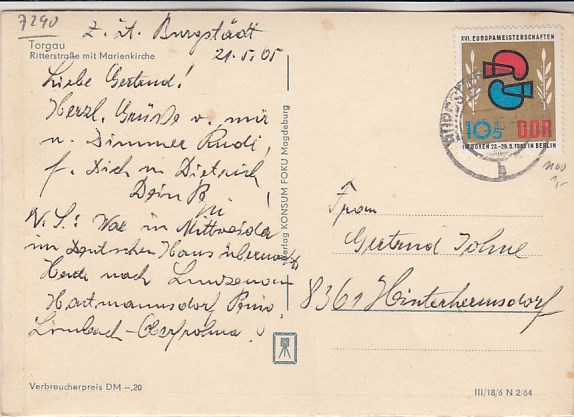 7290
z. Zt. Burgstädt
21.5.65
Torgau
Ritterstraße mit Marienkirche
Liebe Gertrud!
Herzl. Grüße v. mir
u. Zimmer Rudi,
f. Dich u. Dietrich
Dein
N.S.: War in Mittweida
im Deutschen Haus
Heute nach
Hartmannsdorf
Limbach-Oberfrohna!
Verlag KONSUM FOKU Magdeburg
XVI. EUROPAMEISTERSCHAFTEN
10+5 DDR
IM BOXEN 22.-29.5.1965 IN BERLIN
b
Gertrud Johne
8361 Hinterhermsdorf
Verbreucherpreis DM –,20
III/18/6 N 2/64